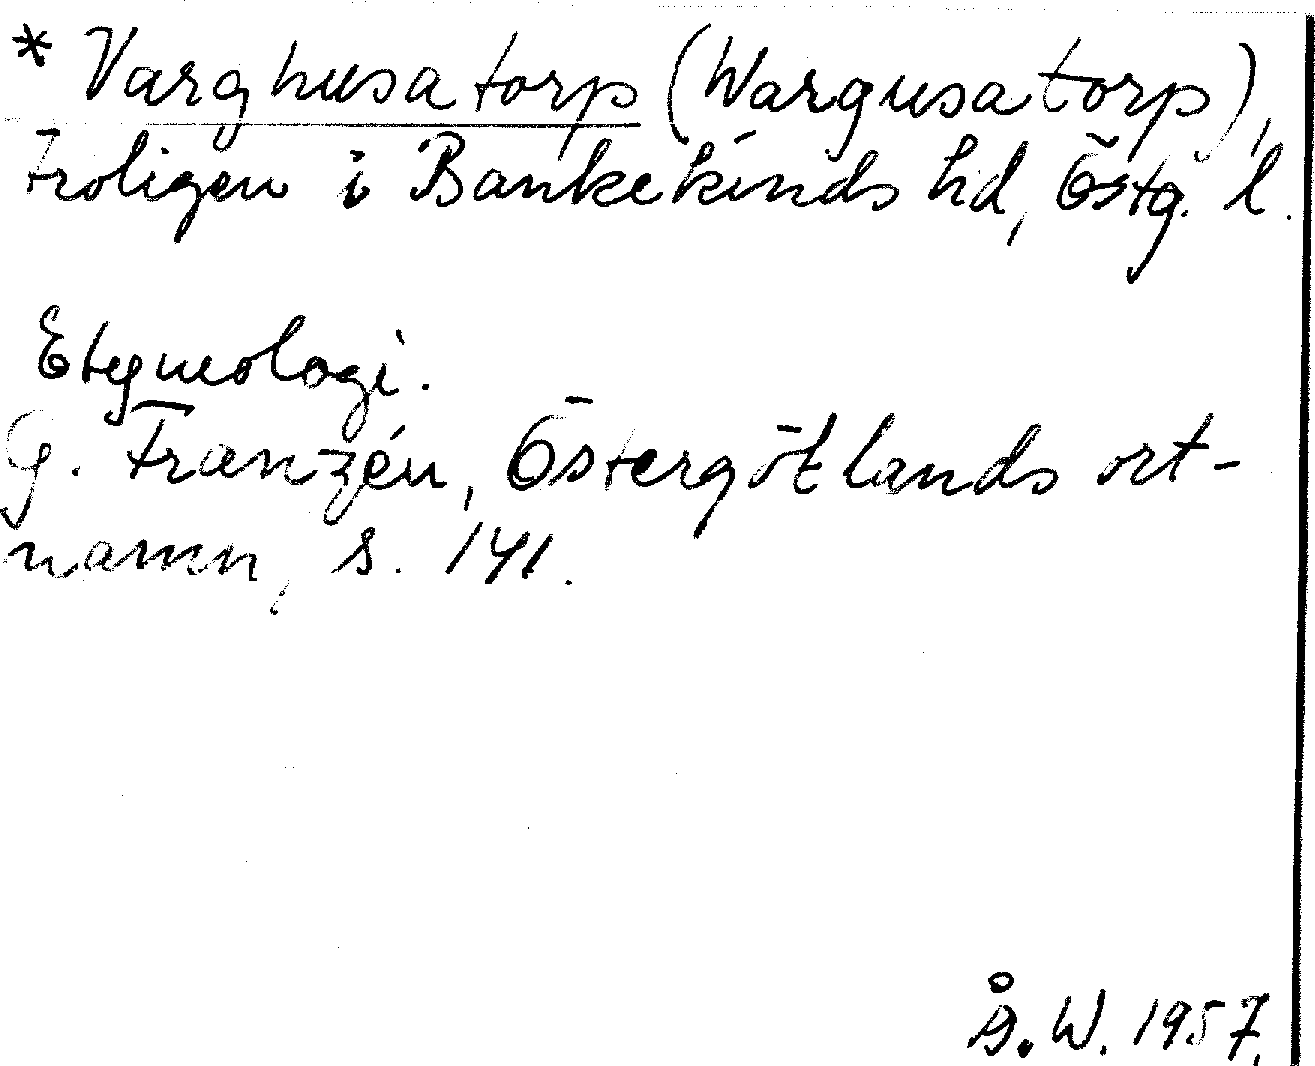 * Varghusatorp (Wargusatorp),
troligen i Bankekinds hd, Östg. l.
Etymologi.
G. Franzén, Östergötlands ort-
namn, s. 141.
Å. W. 1957.